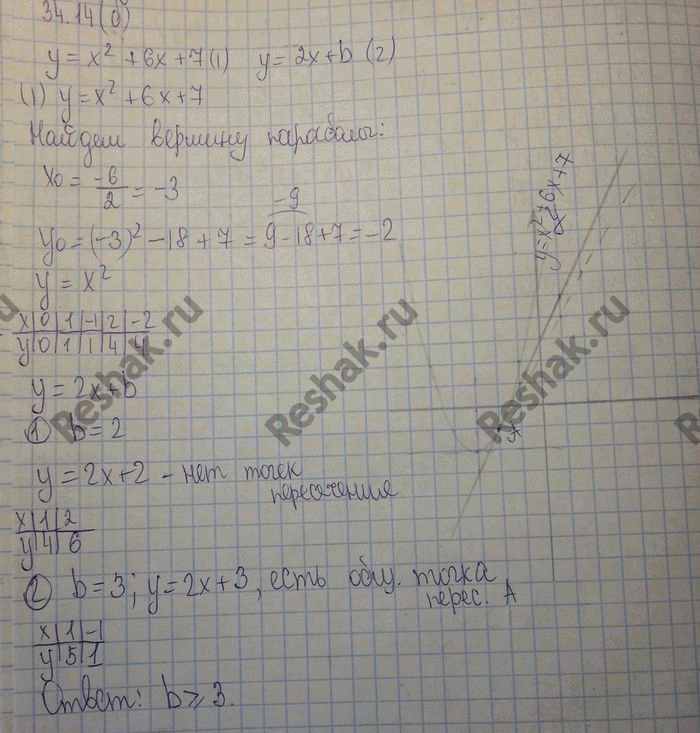 34.14(б)
y = x² + 6x + 7 (1)   y = 2x + b (2)
(1) y = x² + 6x + 7
Найдем вершину парабалы:
x₀ = -6/2 = -3
-9
y₀ = (-3)² - 18 + 7 = 9 - 18 + 7 = -2
y = x²
x | 0 | 1 | -1 | 2 | -2
y | 0 | 1 | 1 | 4 | 4
y = 2x + b
① b = 2
y = 2x + 2 - нет точек
пересечения
x | 1 | 2
y | 4 | 6
② b = 3; y = 2x + 3, есть общ. точка
перес. A
x | 1 | -1
y | 5 | 1
Ответ: b ⩾ 3.
y = x² + 6x + 7
A
Reshak.ru
Reshak.ru
Reshak.ru